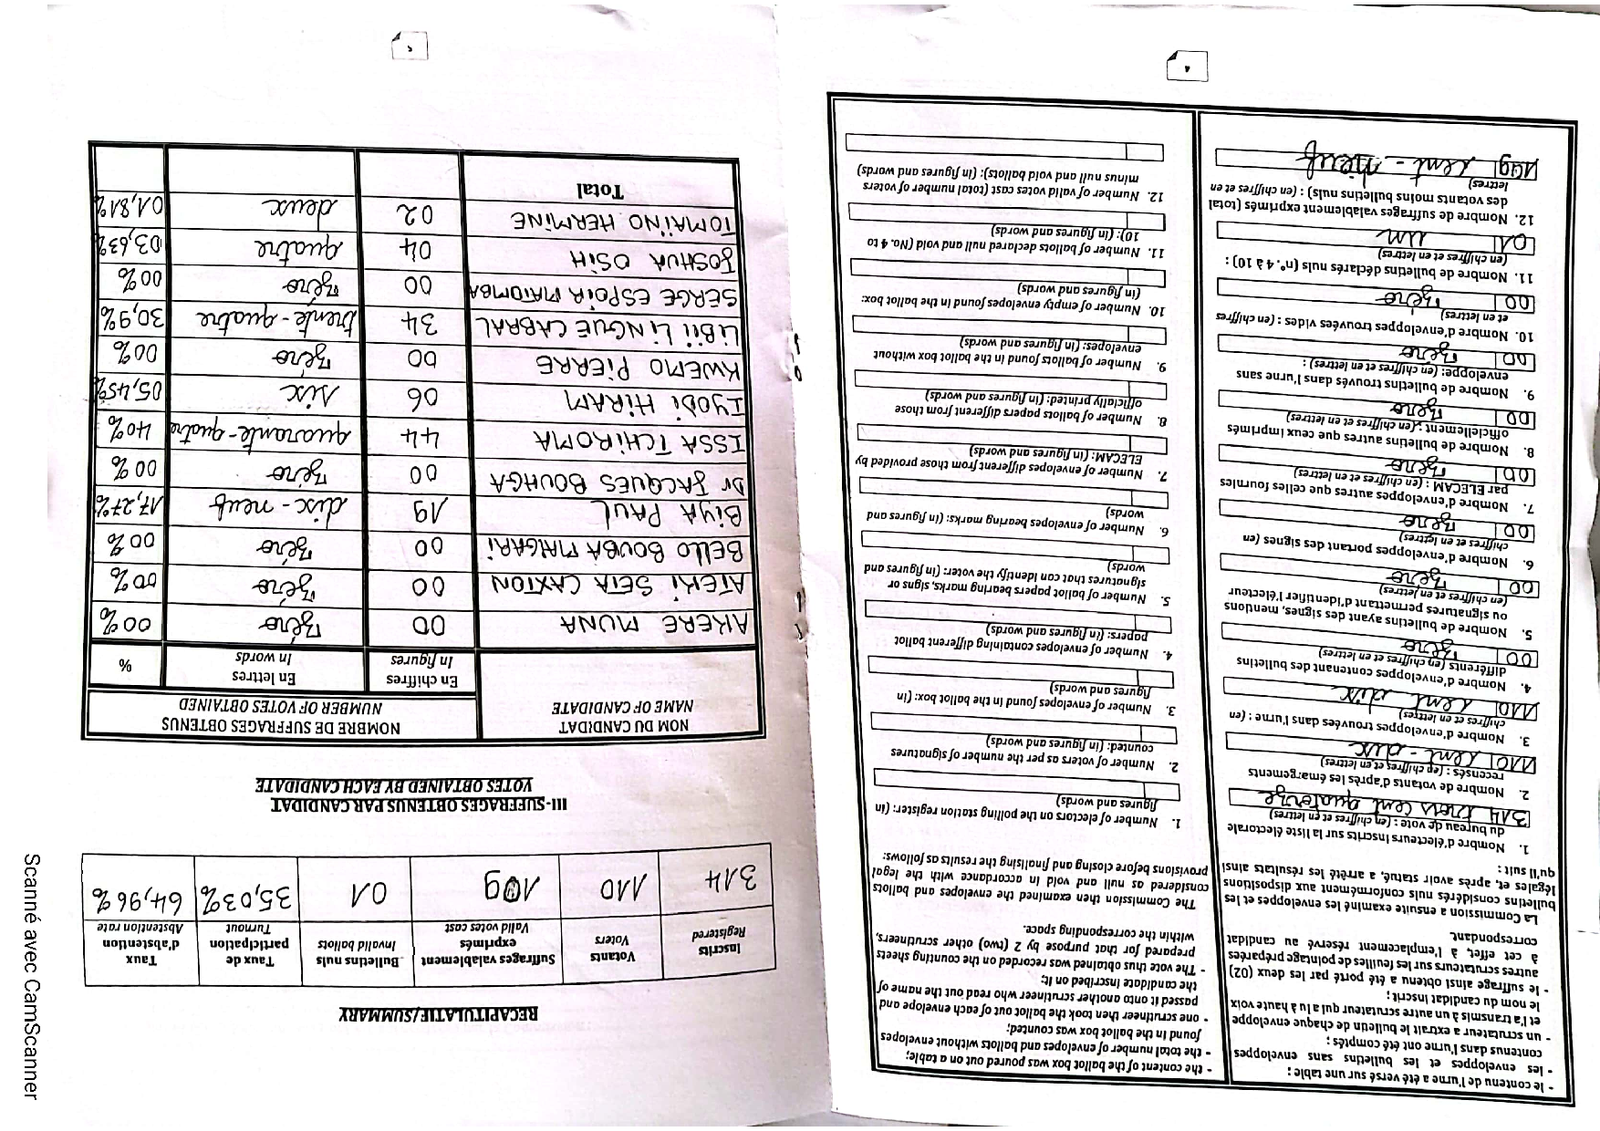 4
- le contenu de l'urne a été versé sur une table ;
- les enveloppes et les bulletins sans enveloppes
contenus dans l'urne ont été comptés ;
- un scrutateur a extrait le bulletin de chaque enveloppe
et l'a transmis à un autre scrutateur qui a lu à haute voix
le nom du candidat inscrit ;
- le suffrage ainsi obtenu a été porté par les deux (02)
autres scrutateurs sur les feuilles de pointage préparées
à cet effet, à l'emplacement réservé au candidat
correspondant.
La Commission a ensuite examiné les enveloppes et les
bulletins considérés nuls conformément aux dispositions
légales et, après avoir statué, a arrêté les résultats ainsi
qu'il suit :
1. Nombre d'électeurs inscrits sur la liste électorale
du bureau de vote : (en chiffres et en lettres)
314 trois cent quatorze
2. Nombre de votants d'après les émargements
recensés : (en chiffres et en lettres)
110 cent-dix
3. Nombre d'enveloppes trouvées dans l'urne : (en
chiffres et en lettres)
110 cent dix
4. Nombre d'enveloppes contenant des bulletins
différents (en chiffres et en lettres)
00 zéro
5. Nombre de bulletins ayant des signes, mentions
ou signatures permettant d'identifier l'électeur
(en chiffres et en lettres)
00 zéro
6. Nombre d'enveloppes portant des signes (en
chiffres et en lettres)
00 zéro
7. Nombre d'enveloppes autres que celles fournies
par ELECAM : (en chiffres et en lettres)
00 zéro
8. Nombre de bulletins autres que ceux imprimés
officiellement : (en chiffres et en lettres)
00 zéro
9. Nombre de bulletins trouvés dans l'urne sans
enveloppe: (en chiffres et en lettres) :
00 zéro
10. Nombre d'enveloppes trouvées vides : (en chiffres
et en lettres)
00 zéro
11. Nombre de bulletins déclarés nuls (n°. 4 à 10) :
(en chiffres et en lettres)
01 un
12. Nombre de suffrages valablement exprimés (total
des votants moins bulletins nuls) : (en chiffres et en
lettres)
109 cent-neuf
- the content of the ballot box was poured out on a table;
- the total number of envelopes and ballots without envelopes
found in the ballot box was counted;
- one scrutineer then took the ballot out of each envelope and
passed it onto another scrutineer who read out the name of
the candidate inscribed on it;
- The vote thus obtained was recorded on the counting sheets
prepared for that purpose by 2 (two) other scrutineers,
within the corresponding space.
The Commission then examined the envelopes and ballots
considered as null and void in accordance with the legal
provisions before closing and finalising the results as follows:
1. Number of electors on the polling station register: (in
figures and words)
2. Number of voters as per the number of signatures
counted: (in figures and words)
3. Number of envelopes found in the ballot box: (in
figures and words)
4. Number of envelopes containing different ballot
papers: (in figures and words)
5. Number of ballot papers bearing marks, signs or
signatures that can identify the voter: (in figures and
words)
6. Number of envelopes bearing marks: (in figures and
words)
7. Number of envelopes different from those provided by
ELECAM: (in figures and words)
8. Number of ballots papers different from those
officially printed: (in figures and words)
9. Number of ballots found in the ballot box without
envelopes: (in figures and words)
10. Number of empty envelopes found in the ballot box:
(in figures and words)
11. Number of ballots declared null and void (No. 4 to
10): (in figures and words)
12. Number of valid votes cast (total number of voters
minus null and void ballots): (in figures and words)
RECAPITULATIF/SUMMARY
Inscrits Votants Suffrages valablement exprimés Bulletins nuls Taux de participation Taux d'abstention
Registered Voters Valid votes cast Invalid ballots Turnout Abstention rate
314 110 109 01 35,03% 64,96%
III- SUFFRAGES OBTENUS PAR CANDIDAT
VOTES OBTAINED BY EACH CANDIDATE
NOM DU CANDIDAT NOMBRE DE SUFFRAGES OBTENUS
NAME OF CANDIDATE NUMBER OF VOTES OBTAINED
En chiffres En lettres %
In figures In words
AKERE MUNA 00 zéro 00%
ATEKI SETA CAXTON 00 zéro 00%
BELLO BOUBA MAIGARI 00 zéro 00%
BIYA PAUL 19 dix-neuf 17,27%
Dr JACQUES BOUHGA 00 zéro 00%
ISSA TCHIROMA 44 quarante-quatre 40%
IYODI HIRAM 06 six 05,45%
KWEMO PIERRE 00 zéro 00%
LIBII LINGUE CABRAL 34 trente-quatre 30,9%
SERGE ESPOIR MATOMBA 00 zéro 00%
JOSHUA OSIH 04 quatre 03,63%
TOMAÏNO HERMINE 02 deux 01,81%
Total
5
Scanné avec CamScanner